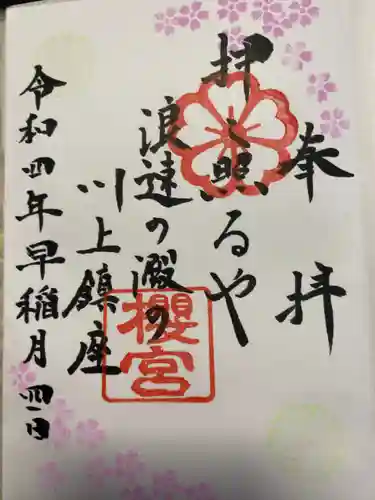 奉拝
押し照るや
浪速の澱の
川上鎮座
令和四年早稲月四日
櫻宮